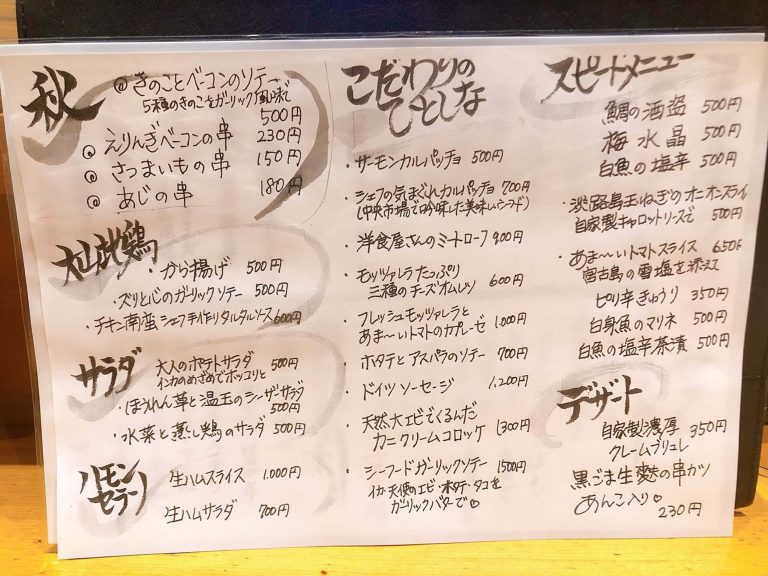 秋
◎きのことベーコンのソテー
5種のきのことガーリック風味で
500円
◎えりんぎベーコンの串 230円
◎さつまいもの串 150円
◎あじの串 180円
大山地鶏
・から揚げ 500円
・ズリと心のガーリックソテー 500円
・チキン南蛮 シェフ手作りタルタルソース 600円
サラダ
大人のポテトサラダ 500円
インカのめざめでホッコリと
・ほうれん草と温玉のシーザーサラダ
500円
・水菜と蒸し鶏のサラダ 500円
ハモンセラーノ
生ハムスライス 1.000円
生ハムサラダ 700円
こだわりの
ひとしな
・サーモンカルパッチョ 500円
・シェフの気まぐれカルパッチョ 700円
(中央市場で吟味した美味しいシーフード)
・洋食屋さんのミートローフ 900円
・モッツァレラたっぷり
三種のチーズオムレツ 600円
・フレッシュモッツァレラと
あま〜いトマトのカプレーゼ 1.000円
・ホタテとアスパラのソテー 700円
・ドイツソーセージ 1.200円
・天然大エビでくるんだ
カニクリームコロッケ 1300円
・シーフードガーリックソテー 1500円
イカ・天使のエビ・ホタテ・タコを
ガーリックバターで♡
スピードメニュー
鯛の酒盗 500円
梅水晶 500円
白魚の塩辛 500円
・淡路島玉ねぎのオニオンスライ
自家製キャロットソースで 500円
・あま〜いトマトスライス 650円
宮古島の雪塩を添えて
ピリ辛きゅうり 350円
白身魚のマリネ 500円
白魚の塩辛茶漬 500円
デザート
自家製濃厚
クレームブリュレ 350円
黒ごま生麩の串カツ
あんこ入り♡
230円